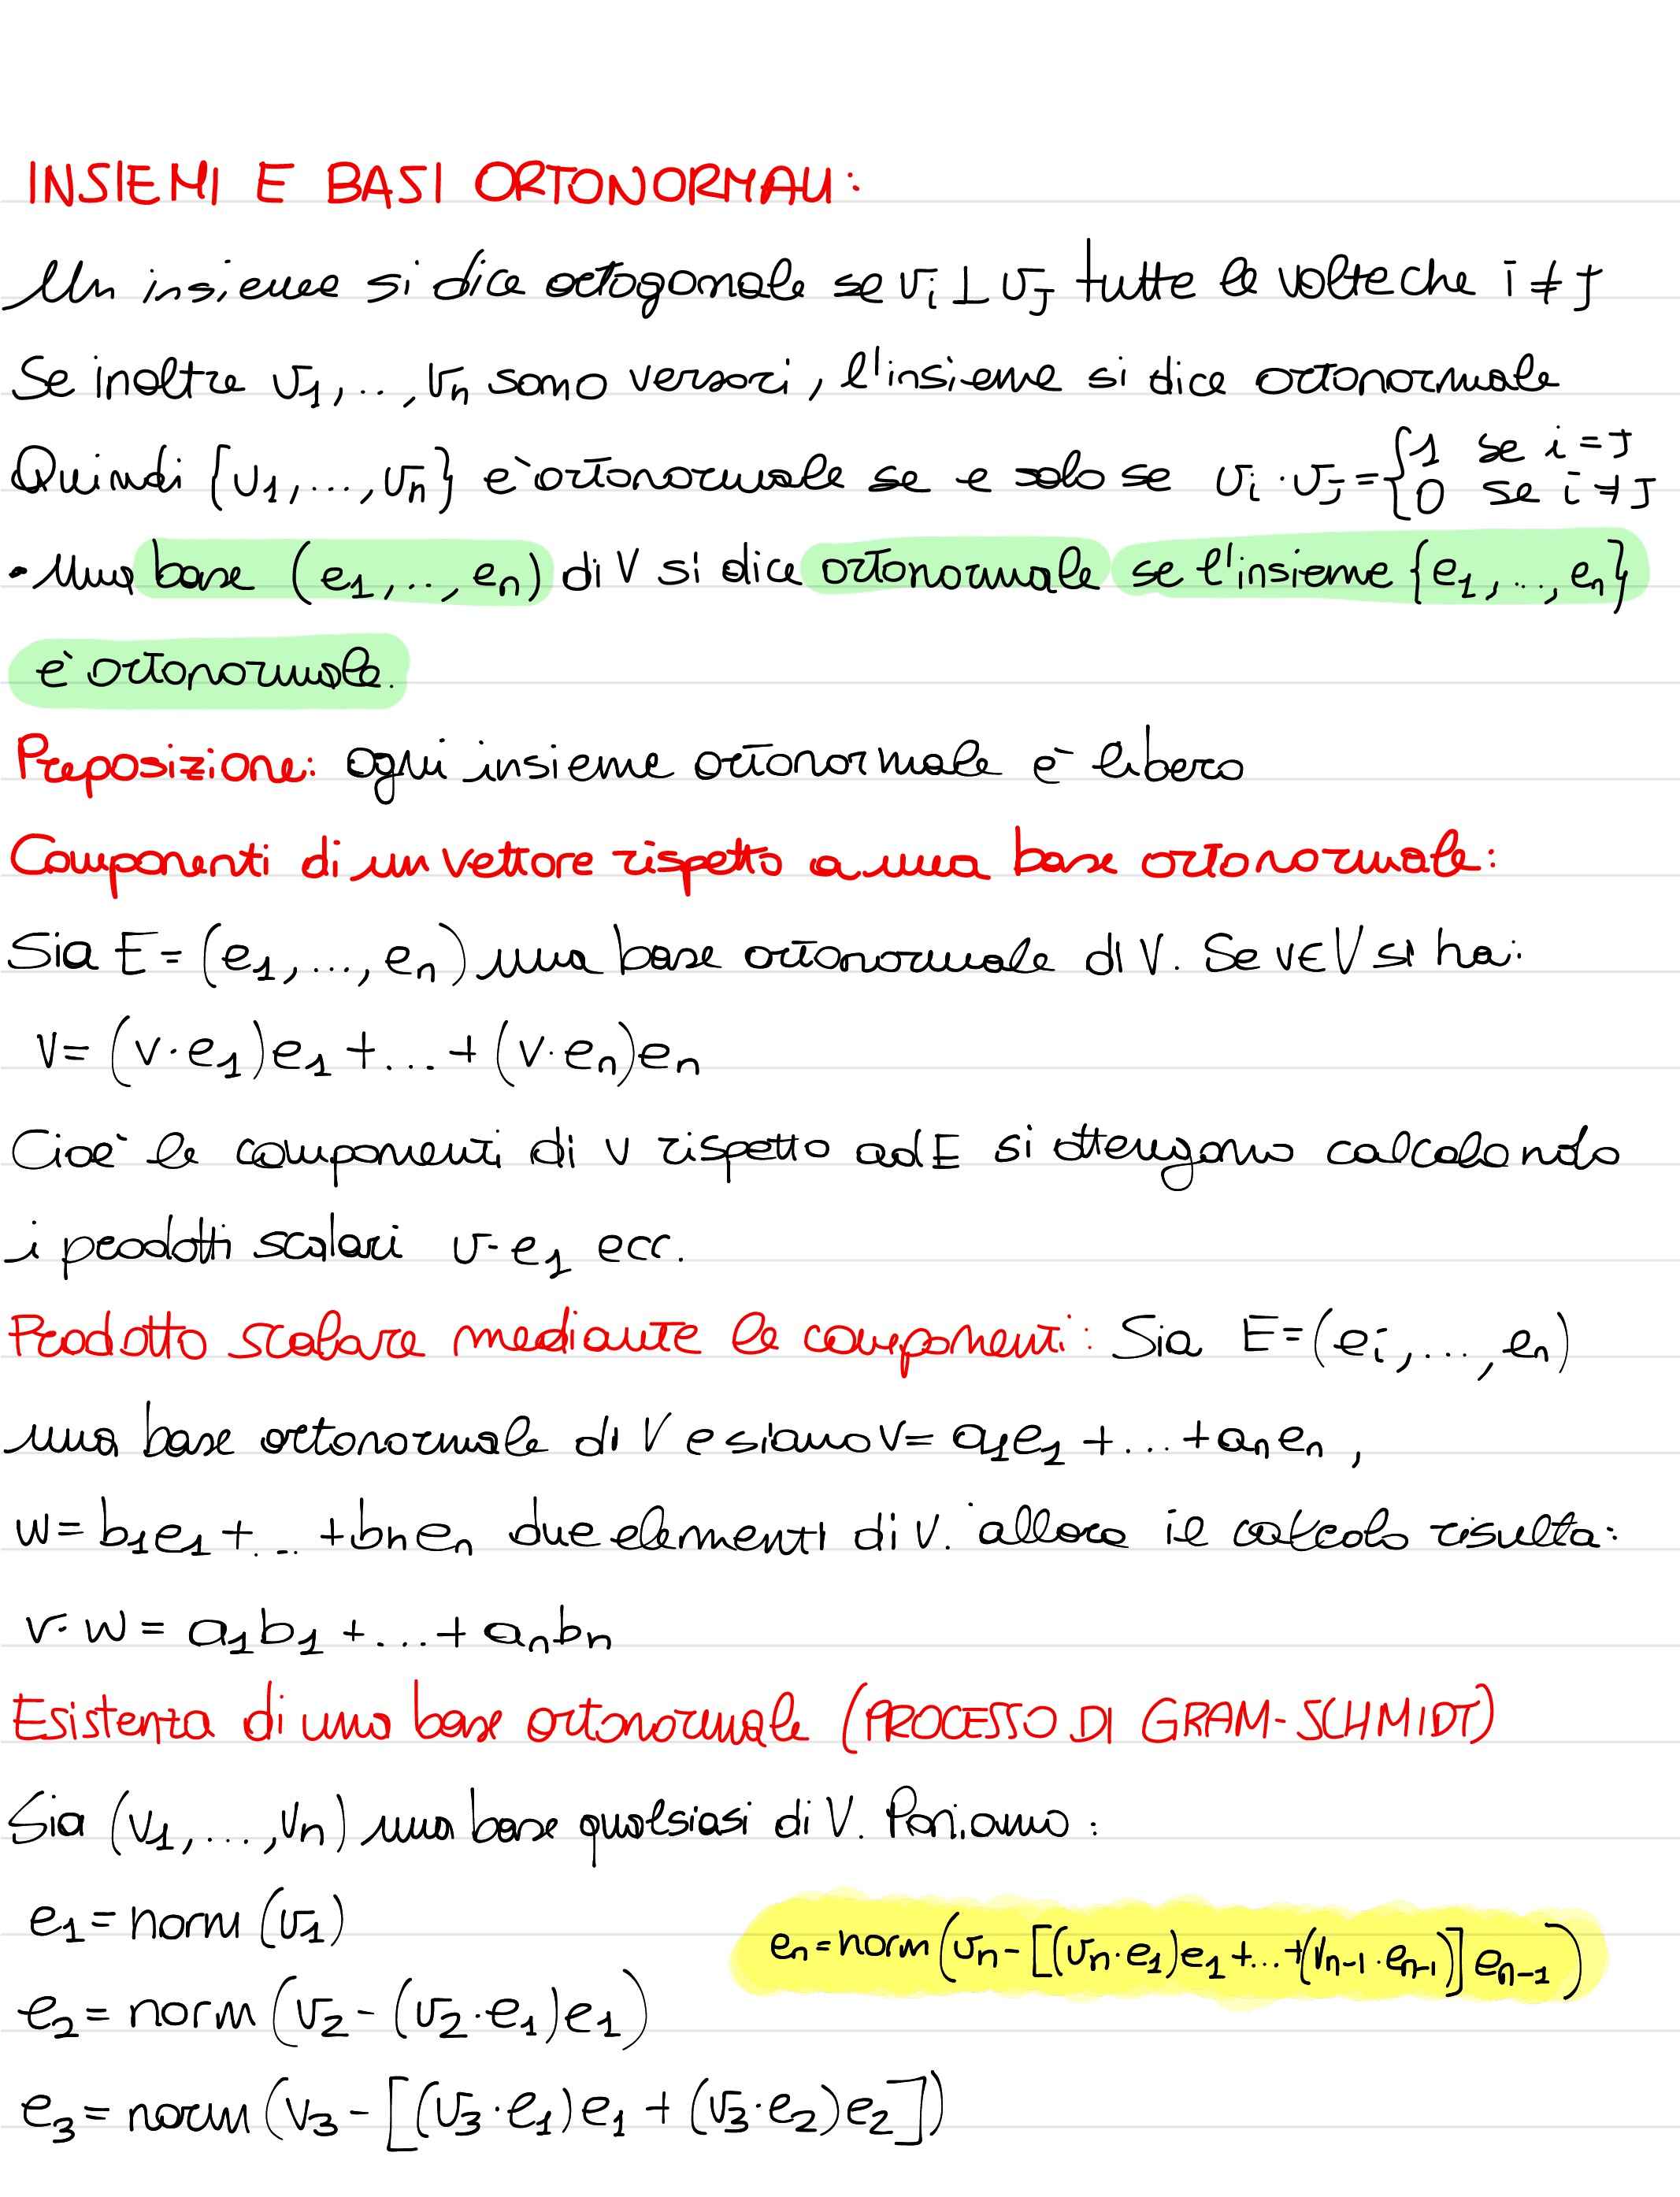 INSIEMI E BASI ORTONORMALI:
Un insieme si dice ortogonale se v_i ⊥ v_J tutte le volte che i ≠ J
Se inoltre v_1, .., v_n sono versori, l'insieme si dice ortonormale
Quindi {v_1, ..., v_n} è ortonormale se e solo se v_i · v_J = {1 se i = J
{0 se i ≠ J
• Una base (e_1, .., e_n) di V si dice ortonormale se l'insieme {e_1, ..., e_n}
è ortonormale.
Proposizione: ogni insieme ortonormale è libero
Componenti di un vettore rispetto a una base ortonormale:
Sia E = (e_1, ..., e_n) una base ortonormale di V. Se v ∈ V si ha:
v = (v · e_1)e_1 + ... + (v · e_n)e_n
Cioè le componenti di v rispetto ad E si ottengono calcolando
i prodotti scalari v · e_1 ecc.
Prodotto scalare mediante le componenti: Sia E = (e_i, ..., e_n)
una base ortonormale di V e siano v = a_1e_1 + ... + a_ne_n,
w = b_1e_1 + ... + b_ne_n due elementi di V. allora il calcolo risulta:
v · w = a_1b_1 + ... + a_nb_n
Esistenza di una base ortonormale (PROCESSO DI GRAM-SCHMIDT)
Sia (v_1, ..., v_n) una base qualsiasi di V. Poniamo:
e_1 = norm (v_1)
e_n = norm (v_n - [(v_n · e_1)e_1 + ... + (v_n-1 · e_n-1)] e_n-1)
e_2 = norm (v_2 - (v_2 · e_1)e_1)
e_3 = norm (v_3 - [(v_3 · e_1)e_1 + (v_3 · e_2)e_2])